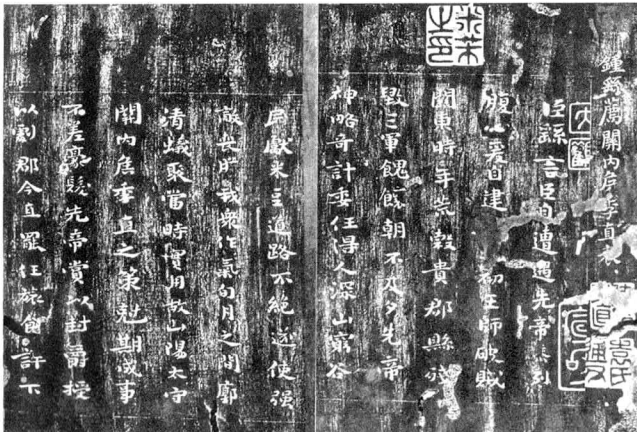 米芾之印
鍾繇薦關內侯季直表
臣繇言臣自遭遇先帝忝列
腹心爰自建初王師破賊
關東時年荒穀貴郡縣殘
毀三軍餽饟朝不及夕先帝
神略奇計委任得人深山窮谷
民獻米豆道路不絕遂使強
敵喪膽我眾作氣旬月之間廓
清蟻聚當時實用故山陽太守
關內侯季直之策剋期成事
不差豪髮先帝賞以封爵授
以劇郡今直罷任旅食許下